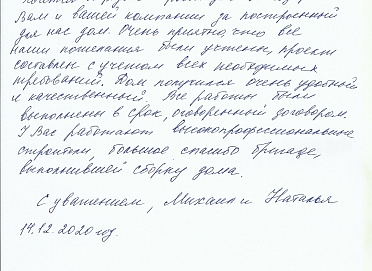 Вам и вашей компании за построенный
для нас дом. Очень приятно, что все
наши пожелания были учтены, проект
составлен с учетом всех необходимых
требований. Дом получился очень удобный
и качественный. Все работы были
выполнены в срок, оговоренный договором.
У Вас работают высокопрофессиональные
строители, большое спасибо бригаде,
выполнившей сборку дома.
С уважением, Михаил и Наталья
14.12.2020 год.